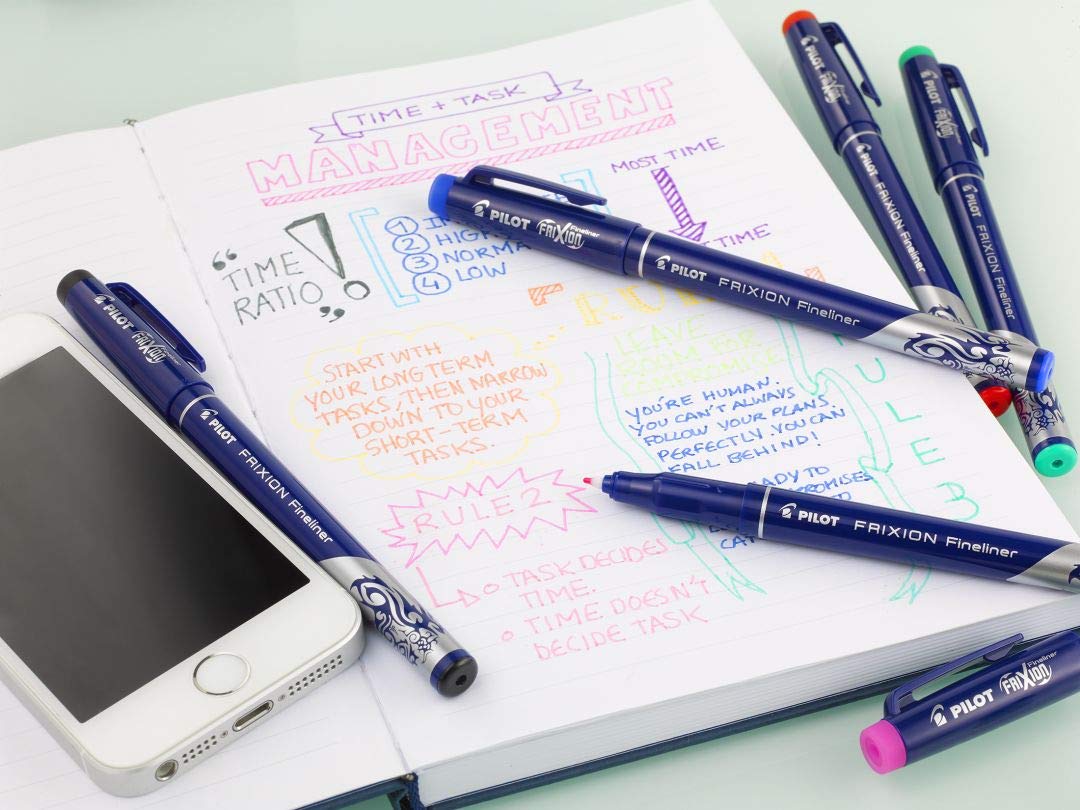 TIME + TASK
MANAGEMENT
MOST TIME
TIME
“TIME
RATIO„
!
1
2 HIGH
3 NORMA
4 LOW
START WTH
YOUR LONG TERM
TASKS, THEN NARROW
DOWN TO YOUR
SHORT-TERM
TASKS.
LEAVE
ROOM FOR
COMPROMISE
YOU'RE HUMAN.
YOU CAN'T ALWAYS
FOLLOW YOUR PLANS
PERFECTLY. YOU CAN
FALL BEHIND!
ADY TO
PROMISES
RULE 2
TASK DECIDES
TIME.
TIME DOESN'T
DECIDE TASK
U
L
E
3
PILOT FRIXION Fineliner
PILOT FRIXION Fineliner
PILOT FRIXION Fineliner
PILOT FRIXION Fineliner
PILOT FRIXION Fineliner
PILOT FRIXION Fineliner
PILOT FRIXION Fineliner
PILOT FRIXION Fineliner
PILOT FRIXION Fineliner
PILOT FRIXION Fineliner